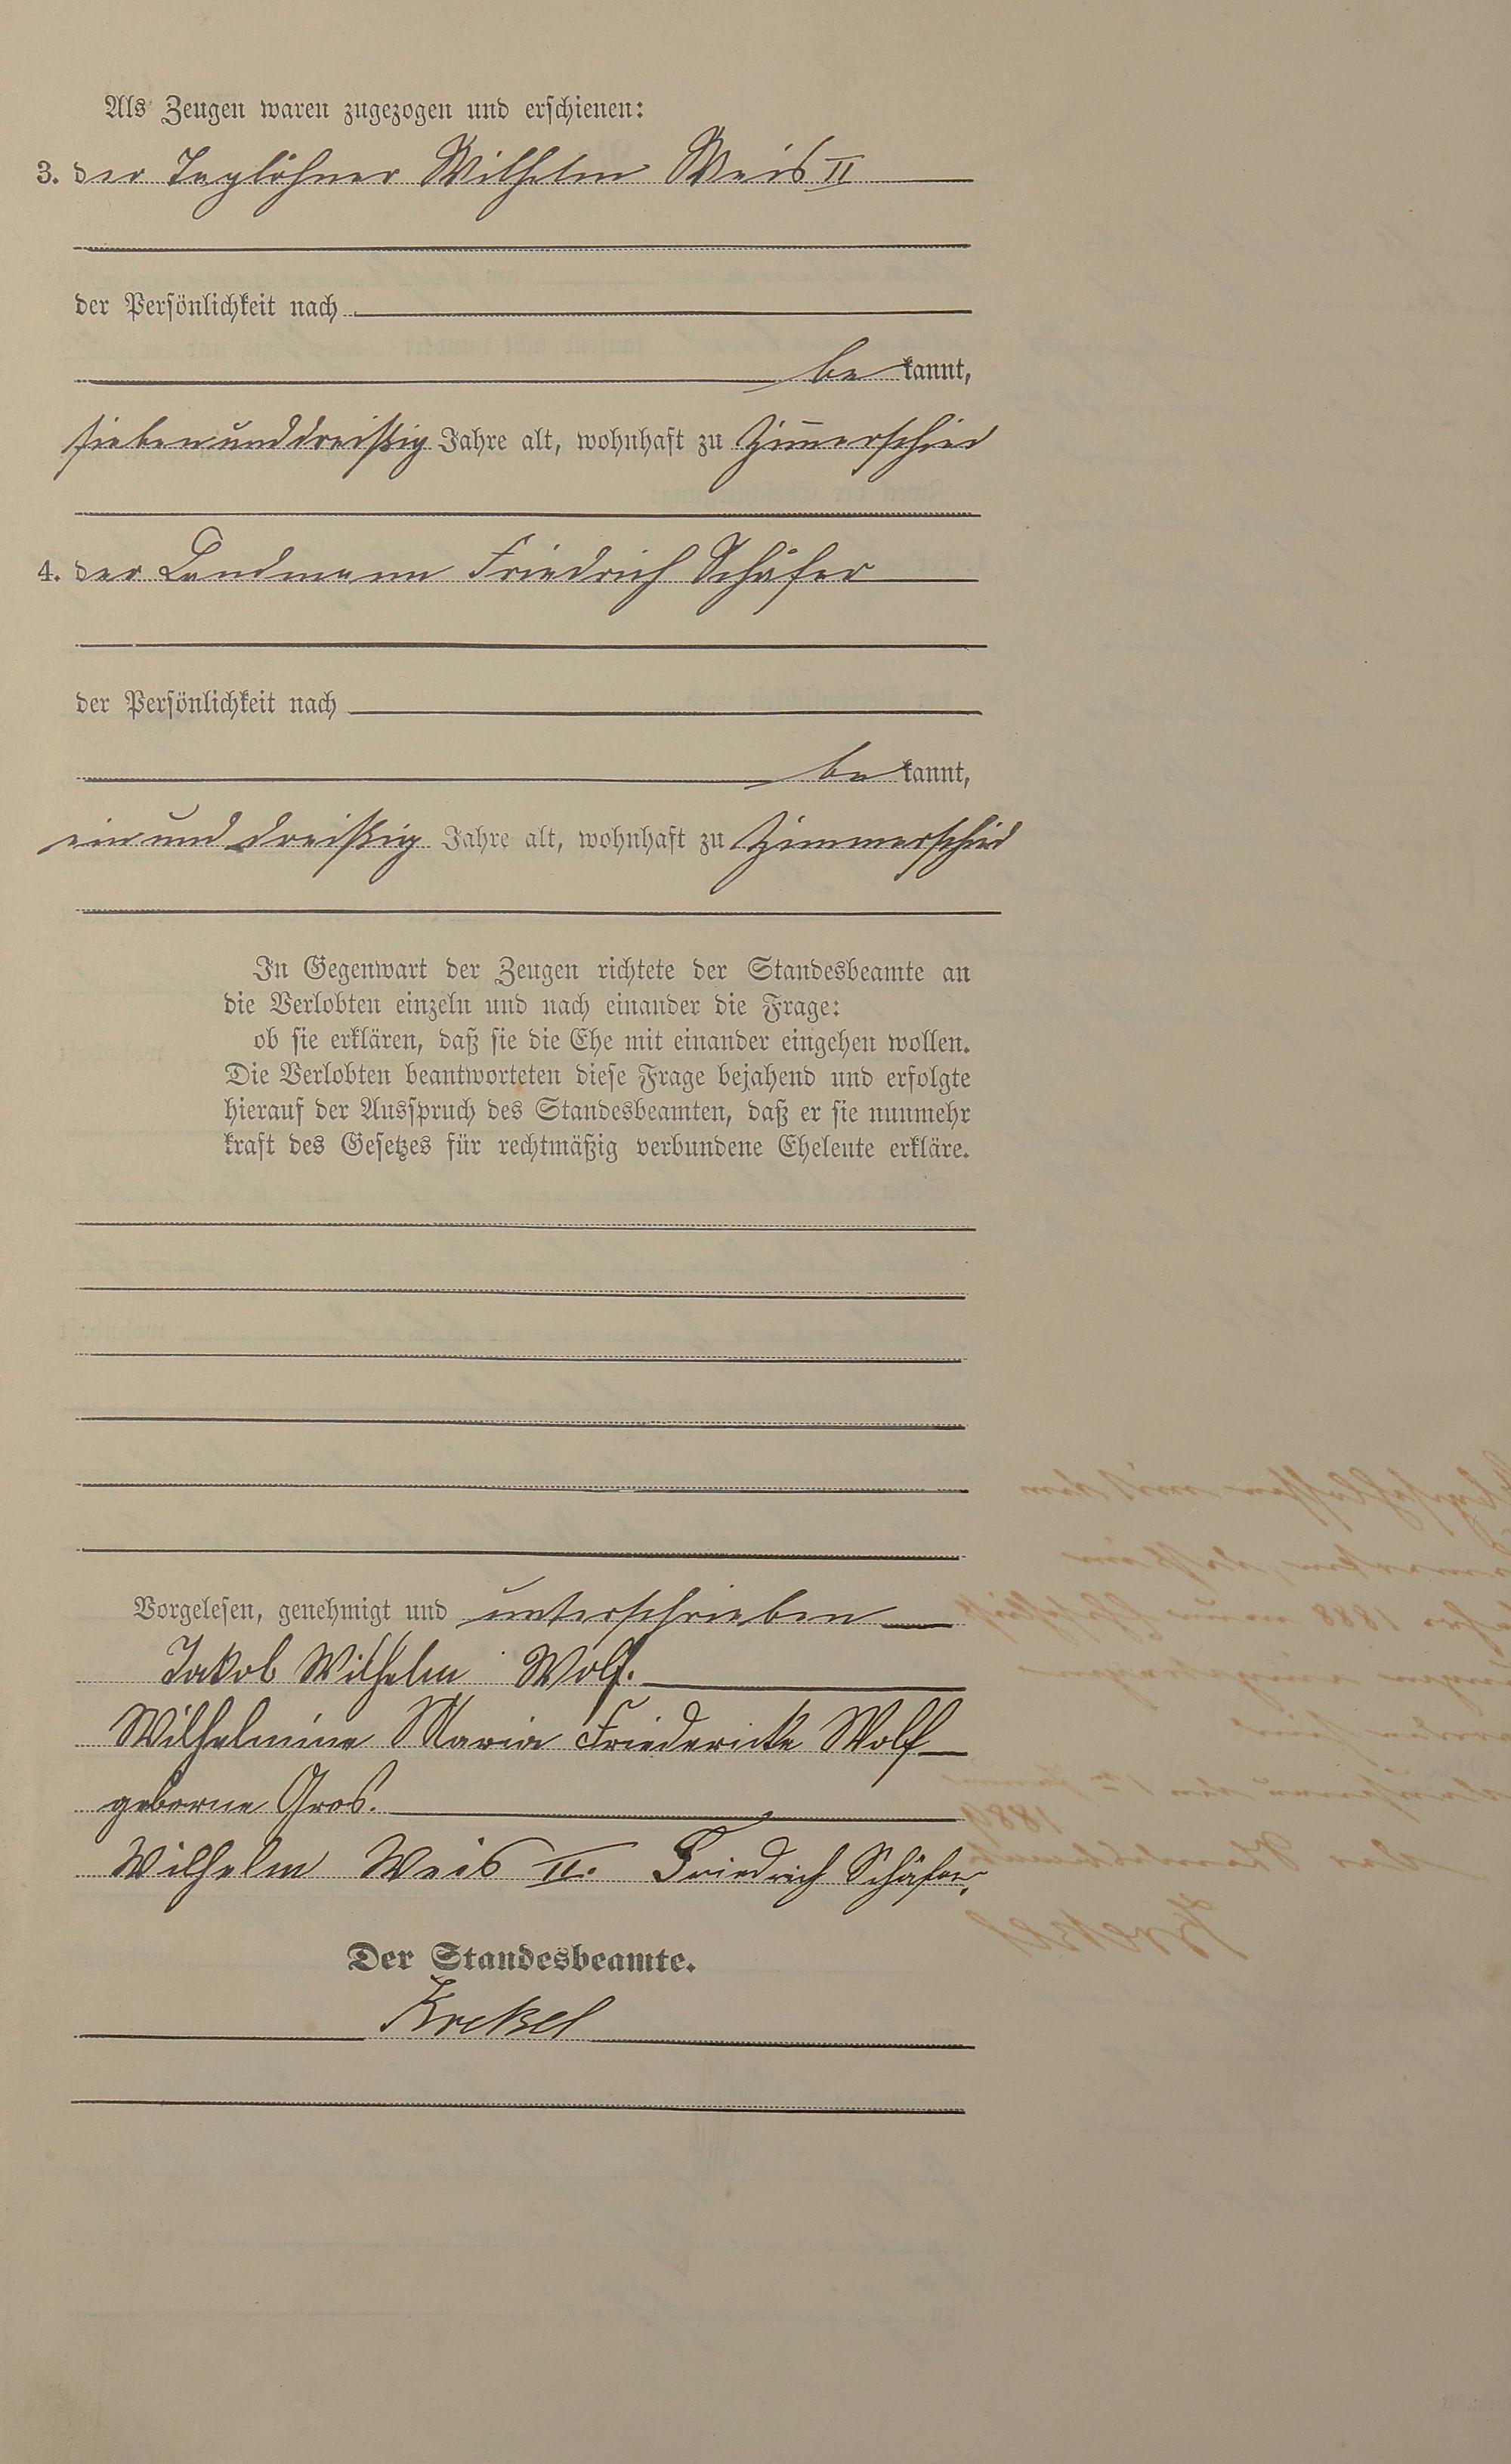 Als Zeugen waren zugezogen und erschienen:
3. der Taglöhner Wilhelm Weis II
der Persönlichkeit nach
be kannt,
siebenunddreißig Jahre alt, wohnhaft zu Zim̅erschied
4. der Landmann Friedrich Schäfer
der Persönlichkeit nach
be kannt,
ein und dreißig Jahre alt, wohnhaft zu Zimmerschied
In Gegenwart der Zeugen richtete der Standesbeamte an
die Verlobten einzeln und nach einander die Frage:
ob sie erklären, daß sie die Ehe mit einander eingehen wollen.
Die Verlobten beantworteten diese Frage bejahend und erfolgte
hierauf der Ausspruch des Standesbeamten, daß er sie nunmehr
kraft des Gesetzes für rechtmäßig verbundene Eheleute erkläre.
Vorgelesen, genehmigt und unterschrieben
Jakob Wilhelm Wolf.
Wilhelmine Maria Friedericke Wolf
geborne Gros.
Wilhelm Weis II. Friedrich Schäfer.
Der Standesbeamte.
Krekel